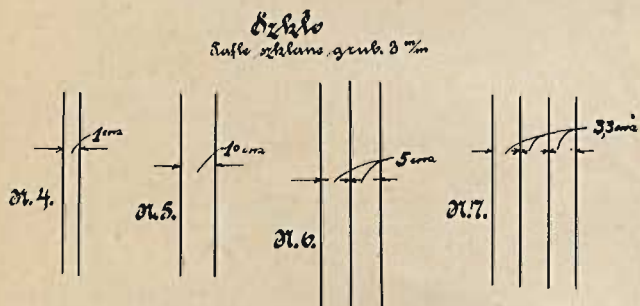 Szkło
Tafle szklane, grub. 3 m/m
N. 4.
1 cm
N. 5.
10 cm
N. 6.
5 cm
N. 7.
3,3 cm